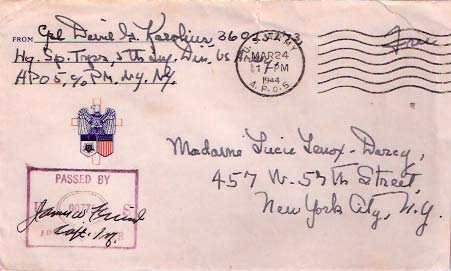 FROM Cpl David G. Karolius, 36025573
Hq. Sp. Trps, 5th Inf. Div. US Army.
APO 5, % PM. Ny. Ny.
Free
U.S. ARMY
MAR 24
1 PM
1944
A.P.O. 5
Madame Lucie Lenox-Darcy,
457 W. 57th Street,
New York City, N.Y.
PASSED BY
U S
ARMY EXAMINER
Capt. Inf.